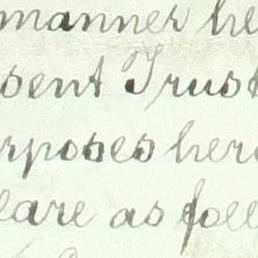 manner he
sent Trust
rposes here
lare as foll